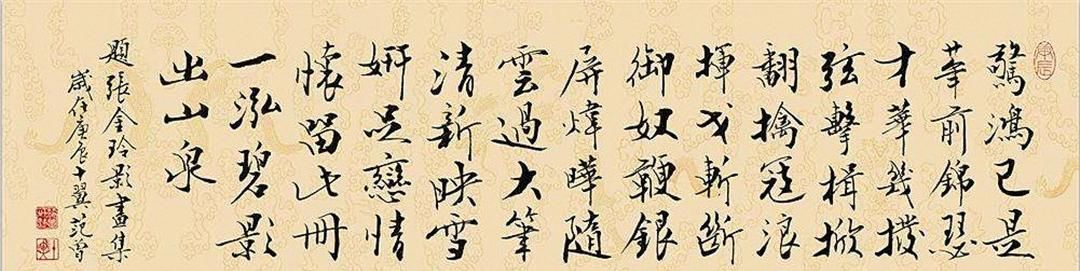 驚鴻已是
華前錦瑟
才華幾撥
弦擊楫掀
翻擒寇浪
揮戈斬斷
御奴鞭銀
屏煒曄隨
雲過大筆
清新映雪
妍戀情
懷留此冊
一泓碧影
出山泉
題張金玲影畫集
歲在庚辰十翼范曾